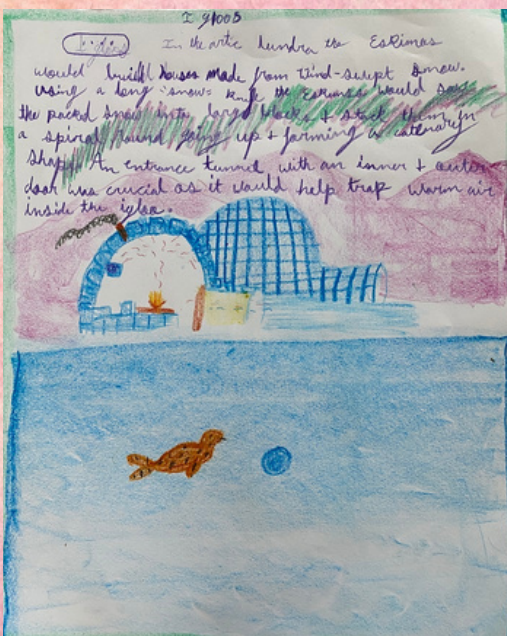 Igloos
In the artic tundra the Eskimos
would build houses made from Wind-swept snow.
Using a long "snow" knife the Eskimos would saw
the packed snow into large blocks & stack them in
a spiral round going up & forming a catenary
shape. An entrance tunnel with an inner & outer
door was crucial as it would help trap warm air
inside the igloo.